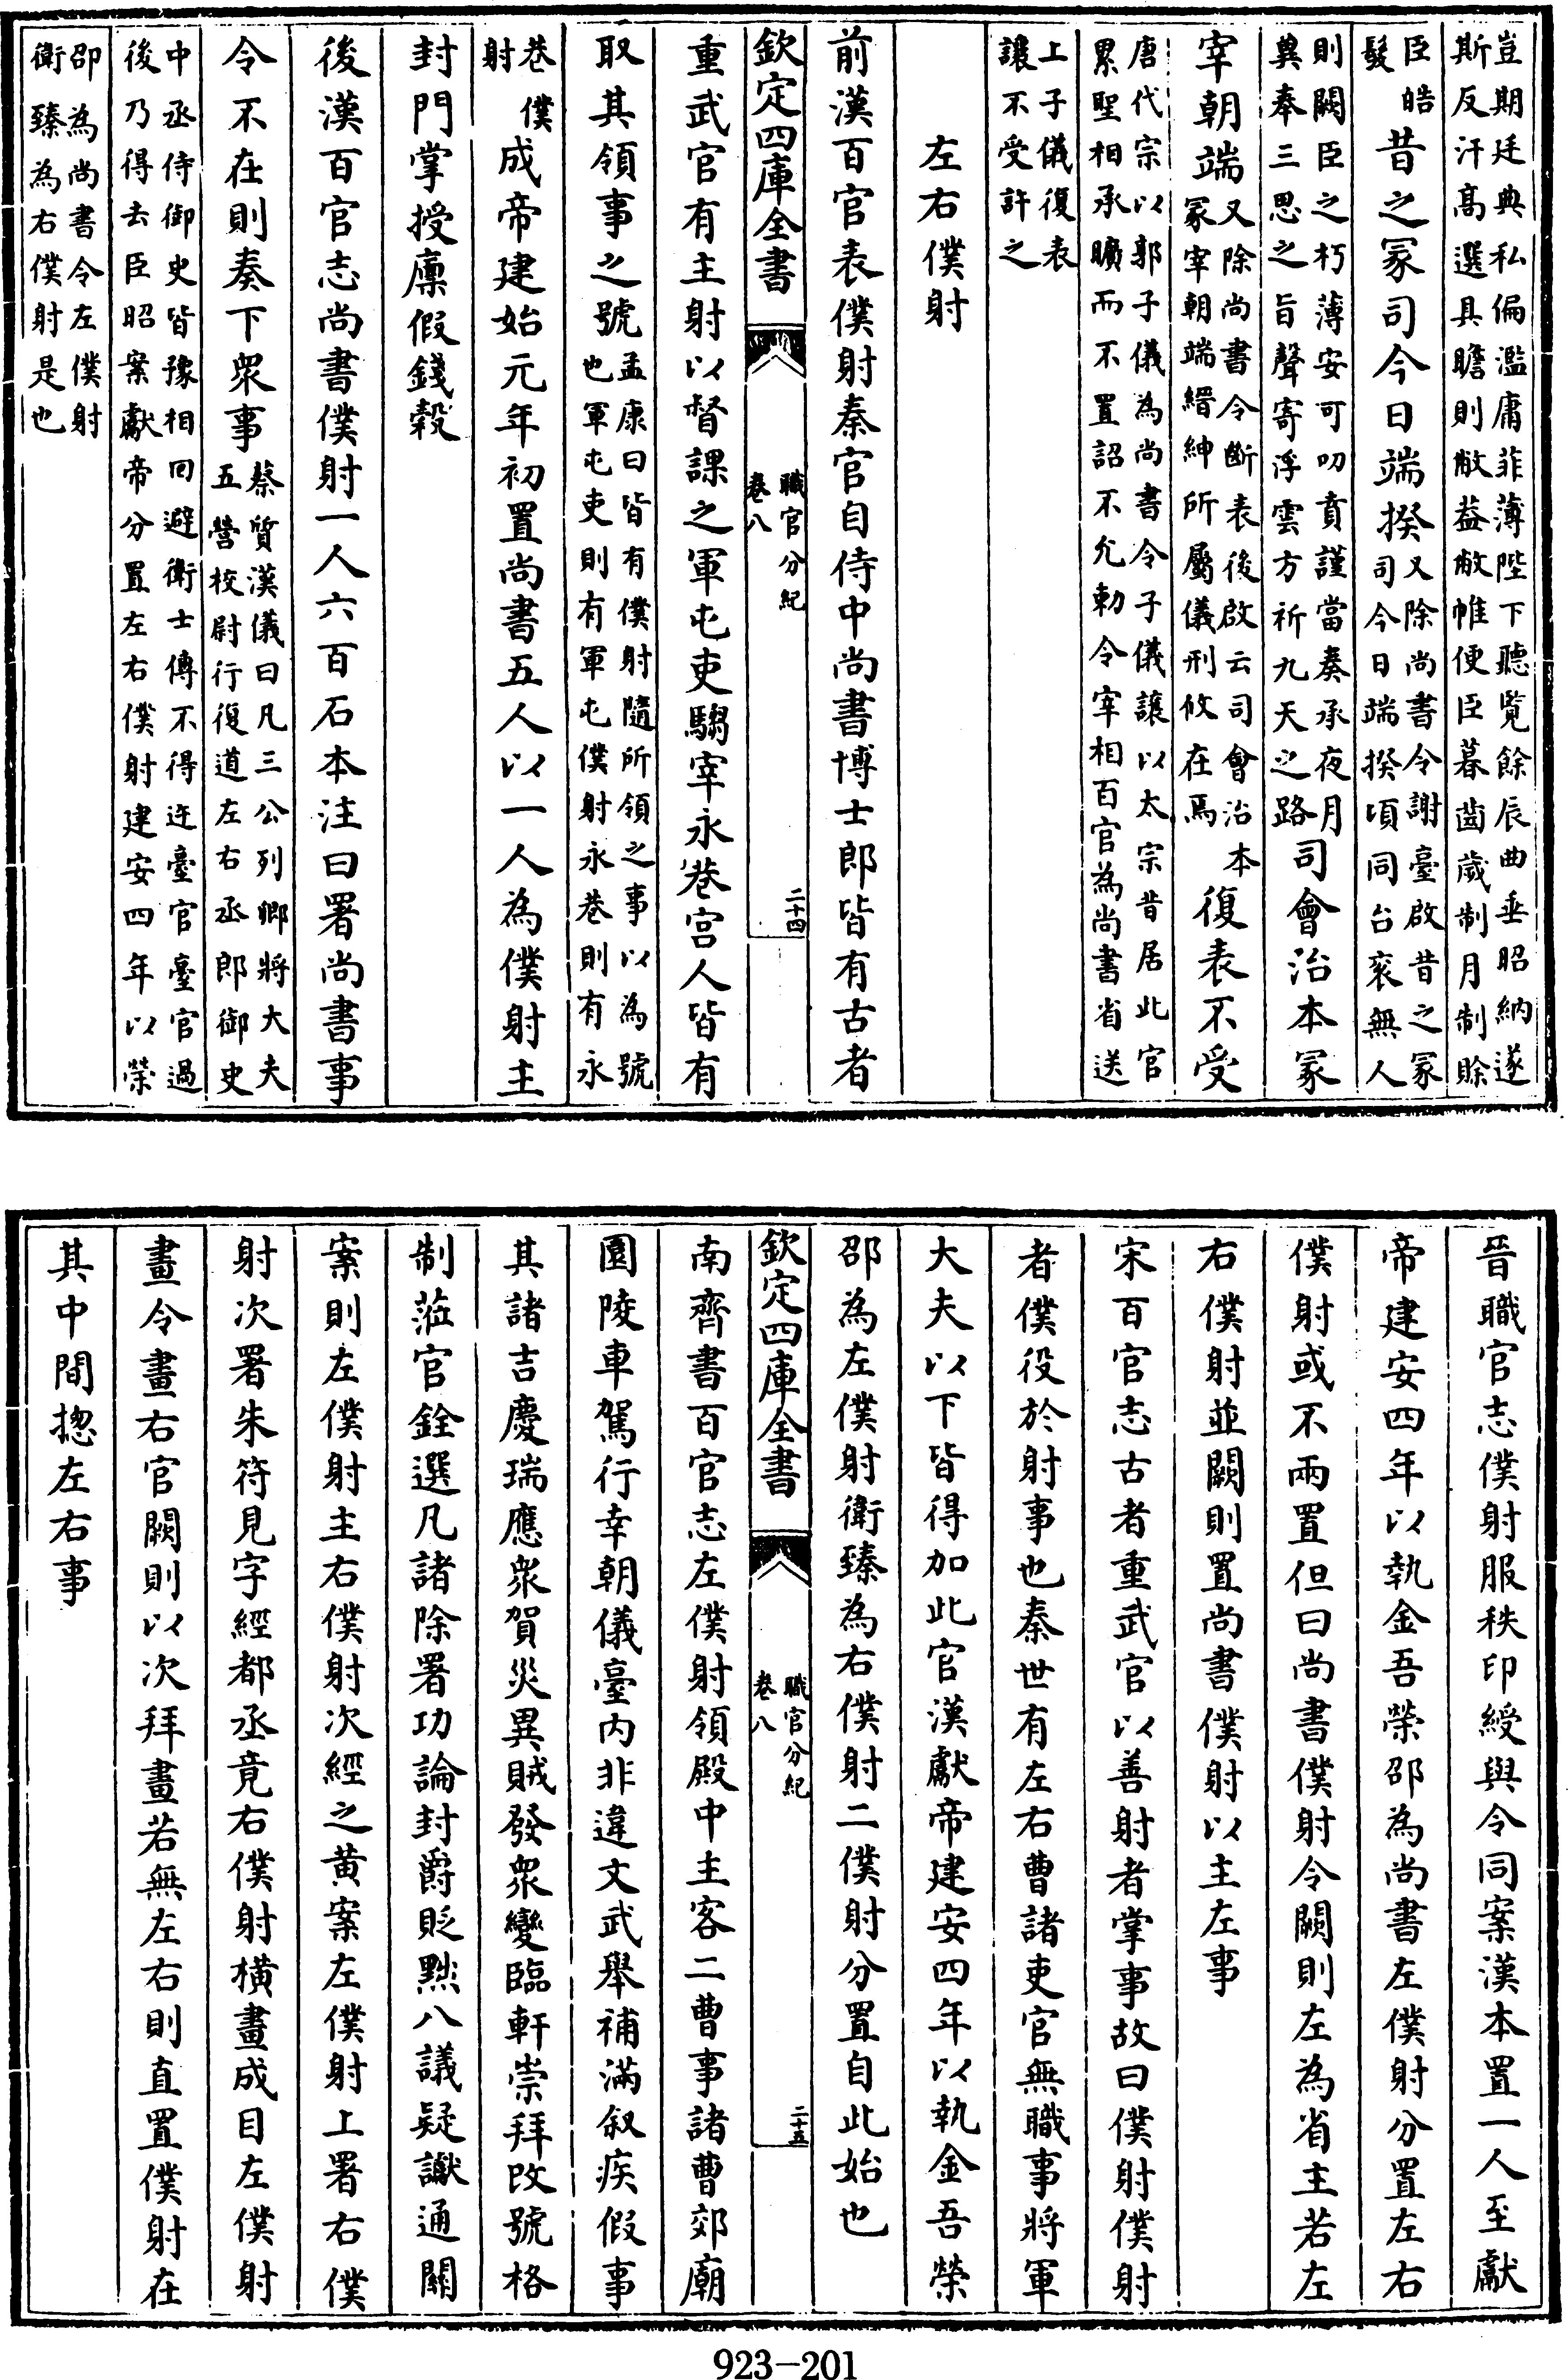 豈期廷典私偏濫庸菲薄陛下聽覽餘辰曲垂昭納遂
斯反汗高選具瞻則敝益敝帷便臣暮齒歲制月制賒
臣皓
髮
昔之冢司今日端揆
又除尚書令謝臺啟昔之冢
司今日端揆頃同台衮無人
則闕臣之朽薄安可叨賁謹當奏承夜月
異奉三思之旨聲寄浮雲方祈九天之路
司會治本冢
宰朝端
又除尚書令斷表後啟云司會治本
冢宰朝端縉紳所屬儀刑攸在焉
復表不受
唐代宗以郭子儀為尚書令子儀讓以太宗昔居此官
累聖相承曠而不置詔不允勅令宰相百官為尚書省送
上子儀復表
讓不受許之
左右僕射
前漢百官表僕射秦官自侍中尚書博士郎皆有古者
欽定四庫全書
職官分紀
卷八
二十四
重武官有主射以督課之軍屯吏騶宰永巷宫人皆有
取其領事之號
孟康曰皆有僕射隨所領之事以為號
也軍屯吏則有軍屯僕射永巷則有永
巷僕
射
成帝建始元年初置尚書五人以一人為僕射主
封門掌授廩假錢穀
後漢百官志尚書僕射一人六百石本注曰署尚書事
令不在則奏下衆事
蔡質漢儀曰凡三公列卿將大夫
五營校尉行復道左右丞郎御史
中丞侍御史皆豫相回避衛士傳不得迕臺官臺官過
後乃得去臣昭案獻帝分置左右僕射建安四年以榮
邵為尚書令左僕射
衛臻為右僕射是也
晉職官志僕射服秩印綬與令同案漢本置一人至獻
帝建安四年以執金吾榮邵為尚書左僕射分置左右
僕射或不兩置但曰尚書僕射令闕則左為省主若左
右僕射並闕則置尚書僕射以主左事
宋百官志古者重武官以善射者掌事故曰僕射僕射
者僕役於射事也秦世有左右曹諸吏官無職事將軍
大夫以下皆得加此官漢獻帝建安四年以執金吾榮
邵為左僕射衛臻為右僕射二僕射分置自此始也
欽定四庫全書
職官分紀
卷八
二十五
南齊書百官志左僕射領殿中主客二曹事諸曹郊廟
園陵車駕行幸朝儀臺内非違文武舉補滿叙疾假事
其諸吉慶瑞應衆賀災異賊發衆變臨軒崇拜改號格
制蒞官銓選凡諸除署功論封爵貶黜八議疑讞通關
案則左僕射主右僕射次經之黄案左僕射上署右僕
射次署朱符見字經都丞竟右僕射橫畫成目左僕射
畫令畫右官闕則以次拜畫若無左右則直置僕射在
其中間捴左右事
923-201